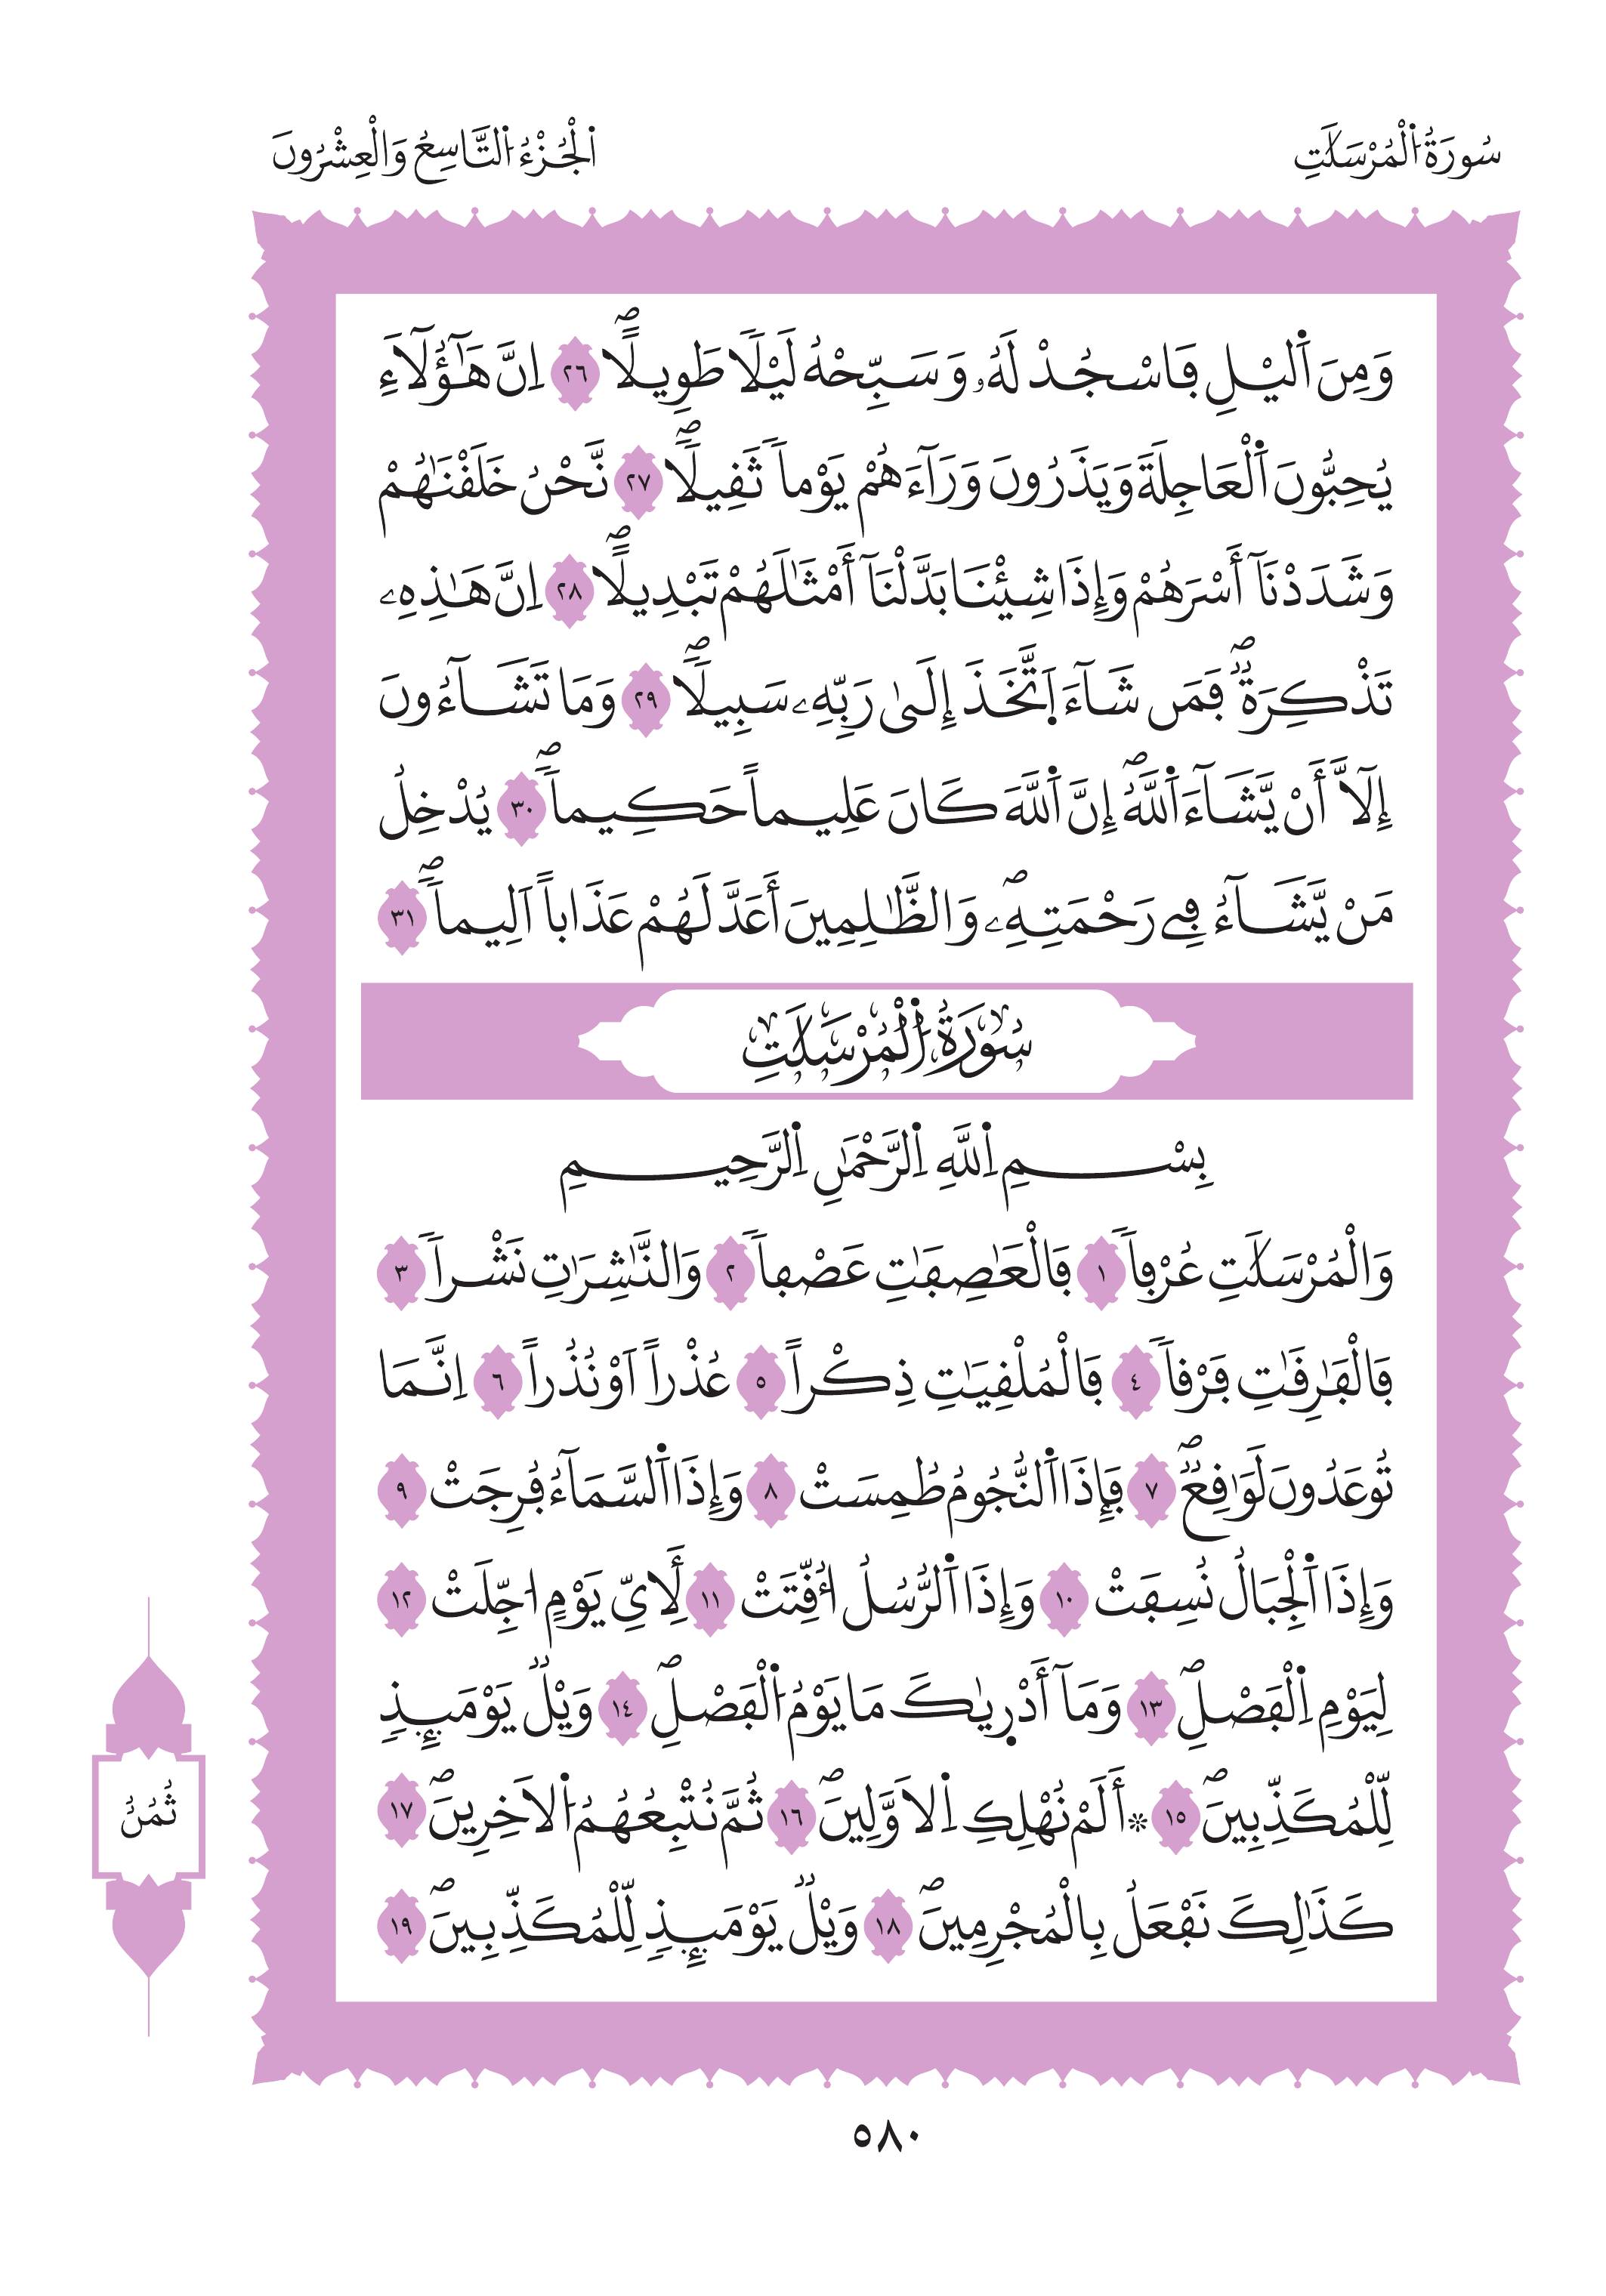 سُورَةُ اُ۬لْمُرْسَلَٰتِ
اَ۬لْجُزْءُ اُ۬لتَّاسِعُ وَالْعِشْرُونَ
وَمِنَ اَ۬ليْلِ فَاسْجُدْ لَهُۥ وَسَبِّحْهُ لَيْلاَ طَوِيلاًۖ ٢٦ اِنَّ هَٰٓؤُلَآءِ
يُحِبُّونَ اَ۬لْعَاجِلَةَ وَيَذَرُونَ وَرَآءَهُمْ يَوْماَ ثَقِيلاَۖ ٢٧ نَّحْنُ خَلَقْنَٰهُمْ
وَشَدَدْنَآ أَسْرَهُمْ وَإِذَا شِئْنَا بَدَّلْنَآ أَمْثَٰلَهُمْ تَبْدِيلاًۖ ٢٨ اِنَّ هَٰذِهِۦ
تَذْكِرَةٞۖ فَمَن شَآءَ اَ۪تَّخَذَ إِلَىٰ رَبِّهِۦ سَبِيلاَۖ ٢٩ وَمَا تَشَآءُونَ
إِلَّآ أَنْ يَّشَآءَ اَ۬للَّهُۖ إِنَّ اَ۬للَّهَ كَانَ عَلِيماً حَكِيماَۖ ٣٠ يُدْخِلُ
مَنْ يَّشَآءُ فِے رَحْمَتِهِۦۖ وَالظَّٰلِمِينَ أَعَدَّ لَهُمْ عَذَاباً اَلِيماَۖ ٣١
سُورَةُ اُ۬لْمُرْسَلَٰتِ
بِسْمِ اِ۬للَّهِ اِ۬لرَّحْمَٰنِ اِ۬لرَّحِيمِ
وَالْمُرْسَلَٰتِ عُرْفاَ ١ فَالْعَٰصِفَٰتِ عَصْفاَ ٢ وَالنَّٰشِرَٰتِ نَشْراَ ٣
فَالْفَٰرِقَٰتِ فَرْقاَ ٤ فَالْمُلْقِيَٰتِ ذِكْراً ٥ عُذْراً اَوْ نُذُراً ٦ اِنَّمَا
تُوعَدُونَ لَوَٰقِعٞۖ ٧ فَإِذَا اَ۬لنُّجُومُ طُمِسَتْ ٨ وَإِذَا اَ۬لسَّمَآءُ فُرِجَتْ ٩
وَإِذَا اَ۬لْجِبَالُ نُسِفَتْ ١٠ وَإِذَا اَ۬لرُّسُلُ أُقِّتَتْ ١١ لِأَيِّ يَوْمٍ ا۟جِّلَتْ ١٢
لِيَوْمِ اِ۬لْفَصْلِۖ ١٣ وَمَآ أَدْر۪يٰكَ مَا يَوْمُ اُ۬لْفَصْلِۖ ١٤ وَيْلٞ يَوْمَئِذٖ
لِّلْمُكَذِّبِينَۖ ١٥ ۞أَلَمْ نُهْلِكِ اِ۬لَاوَّلِينَۖ ١٦ ثُمَّ نُتْبِعُهُمُ اُ۬لَاخِرِينَۖ ١٧
كَذَٰلِكَ نَفْعَلُ بِالْمُجْرِمِينَۖ ١٨ وَيْلٞ يَوْمَئِذٖ لِّلْمُكَذِّبِينَۖ ١٩
ثُمُنُ
٥٨٠